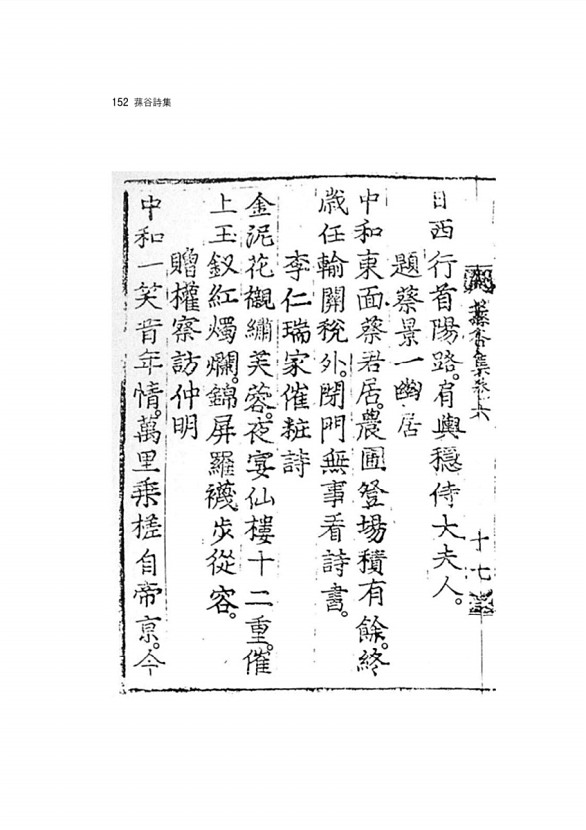 152 蓀谷詩集
蓀谷集卷六 十七
日西行首陽路。有輿穩侍大夫人。
題蔡景一幽居
中和東面蔡君居。農圃登場積有餘。終
歲任輸關稅外。閉門無事看詩書。
李仁瑞家催粧詩
金泥花襯繡芙蓉。夜宴仙樓十二重。催
上玉釵紅燭爛。錦屏羅襪步從容。
贈權察訪仲明
中和一笑昔年情。萬里乘槎自帝京。今